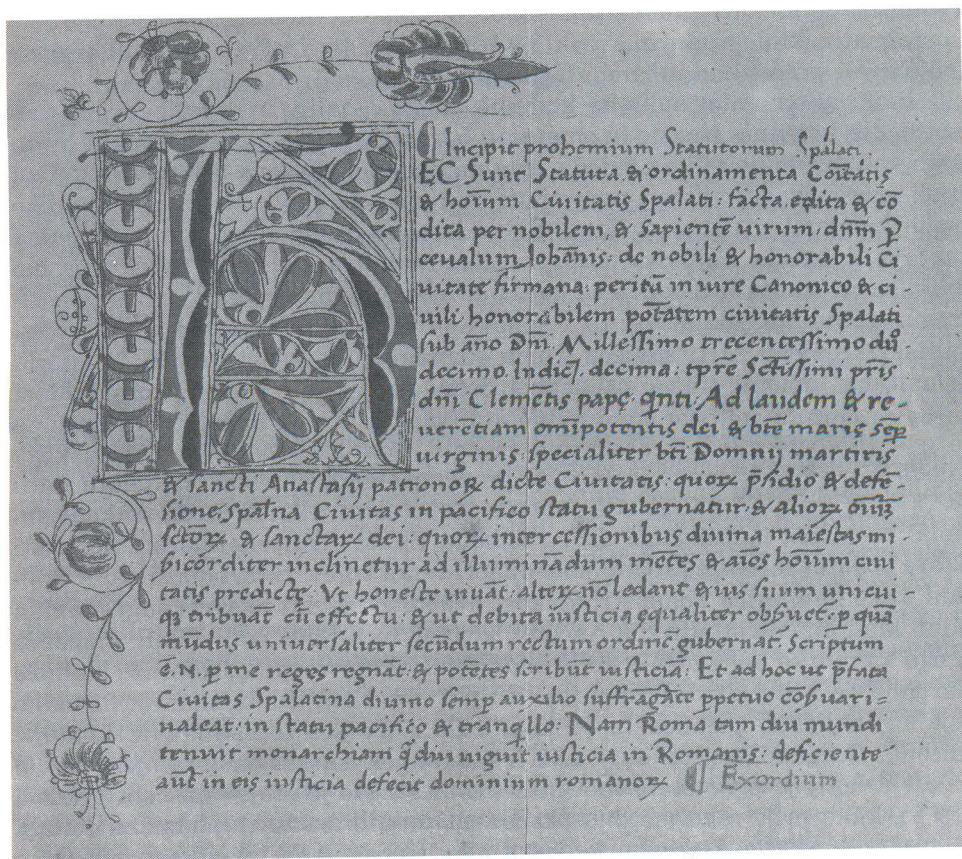 Incipit prohemium Statutorum Spalati
HEC Sunt Statuta & ordinamenta Cōītatis
& hoīum Ciuitatis Spalati: facta, edita & cō
dita per nobilem, & sapientē uirum, dn̄m P̱
ceualum Johānis: de nobili & honorabili Ci
uitate firmana: peritū in iure Canonico & ci-
uili honorabilem pot̄atem ciuitatis Spalati
sub an̄o Dn̄i Millessimo trecentessimo duo
decimo. Indic. decima: tp̄re Sc̄tissimi pr̄is
dn̄i Clemētis papę qnti. Ad laudem & re-
uerētiam om̄ipotentis dei & btē marię sēp
uirginis specialiter bt̄i Domnij martiris
& sancti Anastasij patronoꝝ dicte Ciuitatis. quoꝝ p̄sidio & defē-
sione, Spal̄na Ciuitas in pacifico statu gubernatur. & alioꝝ oīuꝫ
sctōꝝ & sanctaꝝ dei: quoꝝ intercessionibus diuina maiestas mi-
sicorditer inclinetur ad illuminādum mētes & aīos hoīum ciui
tatis predictę. Vt honeste uiuāt. alteꝝ nō ledant & ius suum unicui-
qꝫ tribuāt cū effectu. & ut debita iusticia equaliter obs̄uet̄. ꝑ quā
mūdus uniuersaliter secūdum rectum ordinē gubernat̄. Scriptum
ē. N. ꝑ me reges regnāt. & potētes scribūt iusticiā. Et ad hoc ut p̄fata
Ciuitas Spalatina diuino semꝑ auxilio suffragāte ꝑpetuo cōs̄uari=
ualeat in statu pacifico & tranqllo. Nam Roma tam diu mundi
tenuit monarchiam q̄ diu uiguit iusticia in Romanis: deficiente
aut̄ in eis iusticia defecit dominium romanoꝝ. Exordium